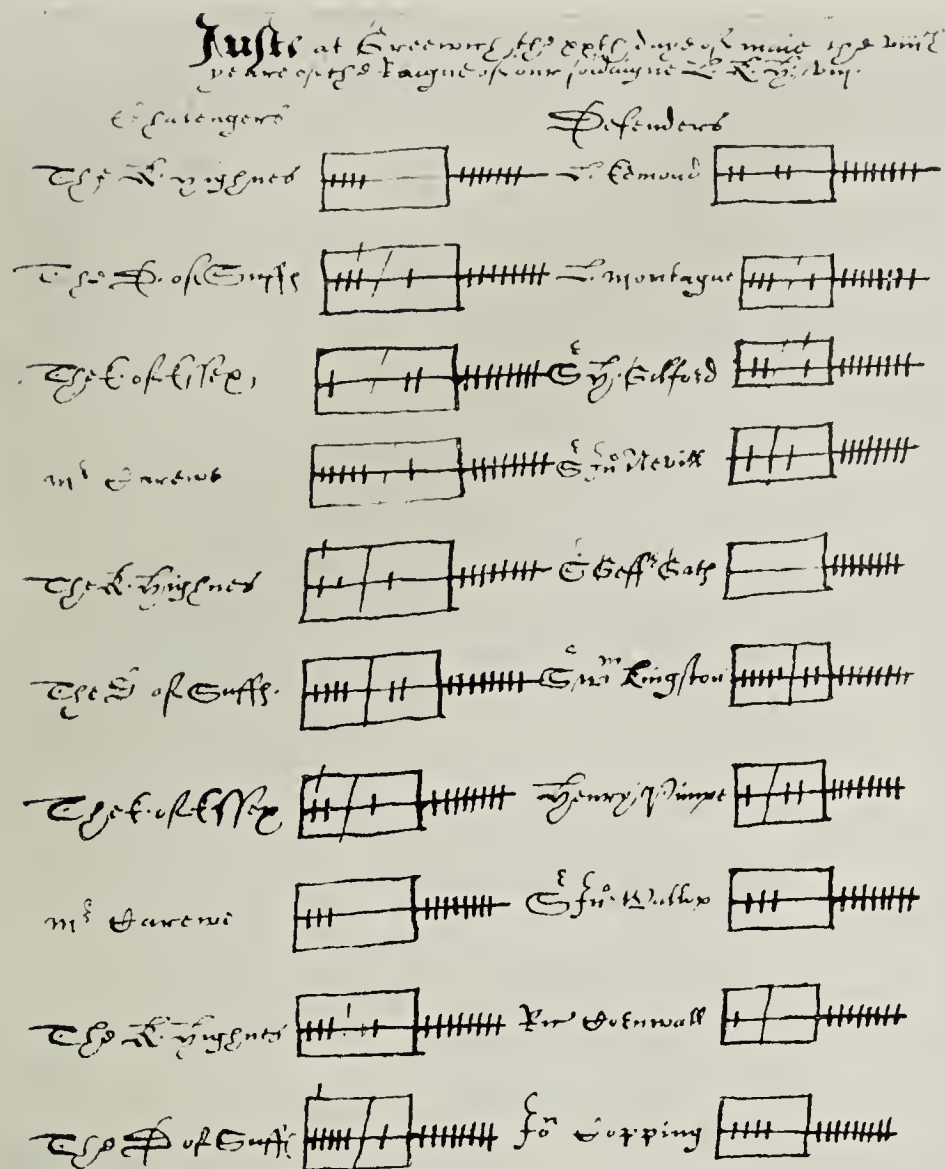 Justs at Greenwich the xxth daye of maie the viiith
yeare of the Raigne of our soveraigne L. K. Hy: viij.
Chalengers Defenders
The K. highnes L. Edmond
The D. of Suff L. montague
The E. of Essex, Sr Hy. Gilford
mr Carewe Sr Jno Nevill
The K. highnes Sr Geff Gat
The D of Suff. Sr Wm Kingston
The E. of Essex Henry Pimpe
mr Carewe Sr Jno. Wallop
The K. highnes Ric Cornwall
The D of Suff Jo Copping